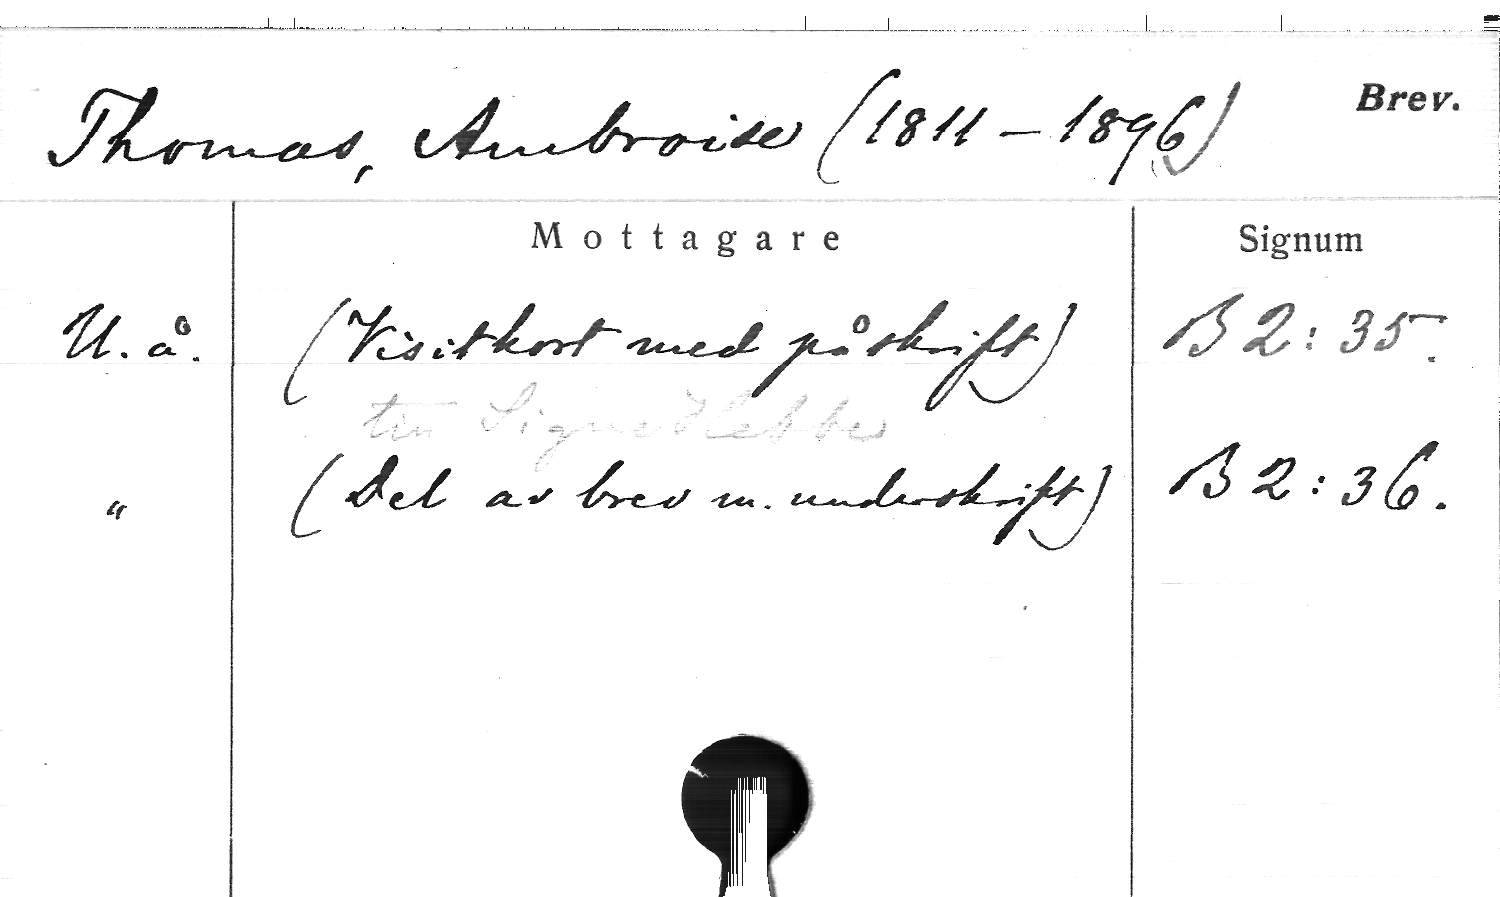 Thomas, Ambroise (1811 – 1896) Brev.
Mottagare Signum
U. å. (Visitkort med påskrift) B 2 : 35.
till Signe Hebbe
" (Del av brev m. underskrift) B 2 : 36.